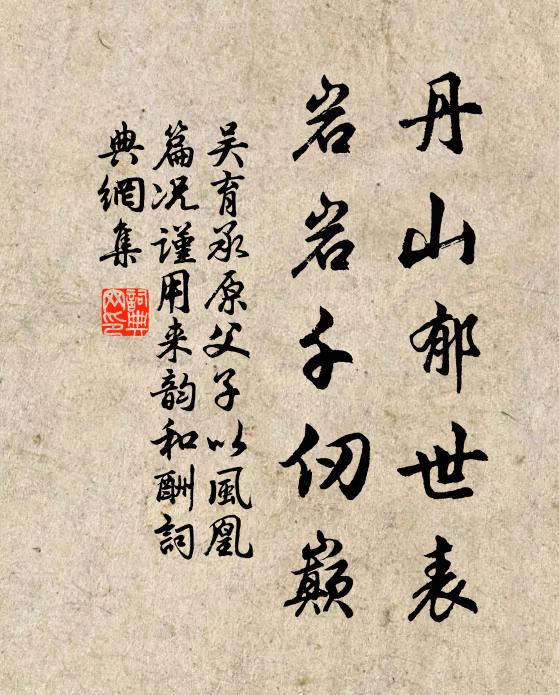 丹山郁世表
岩岩千仞巔
吴育承原父子以風凰
篇况谨用来韵和酬詞
典網集
詞典
网印